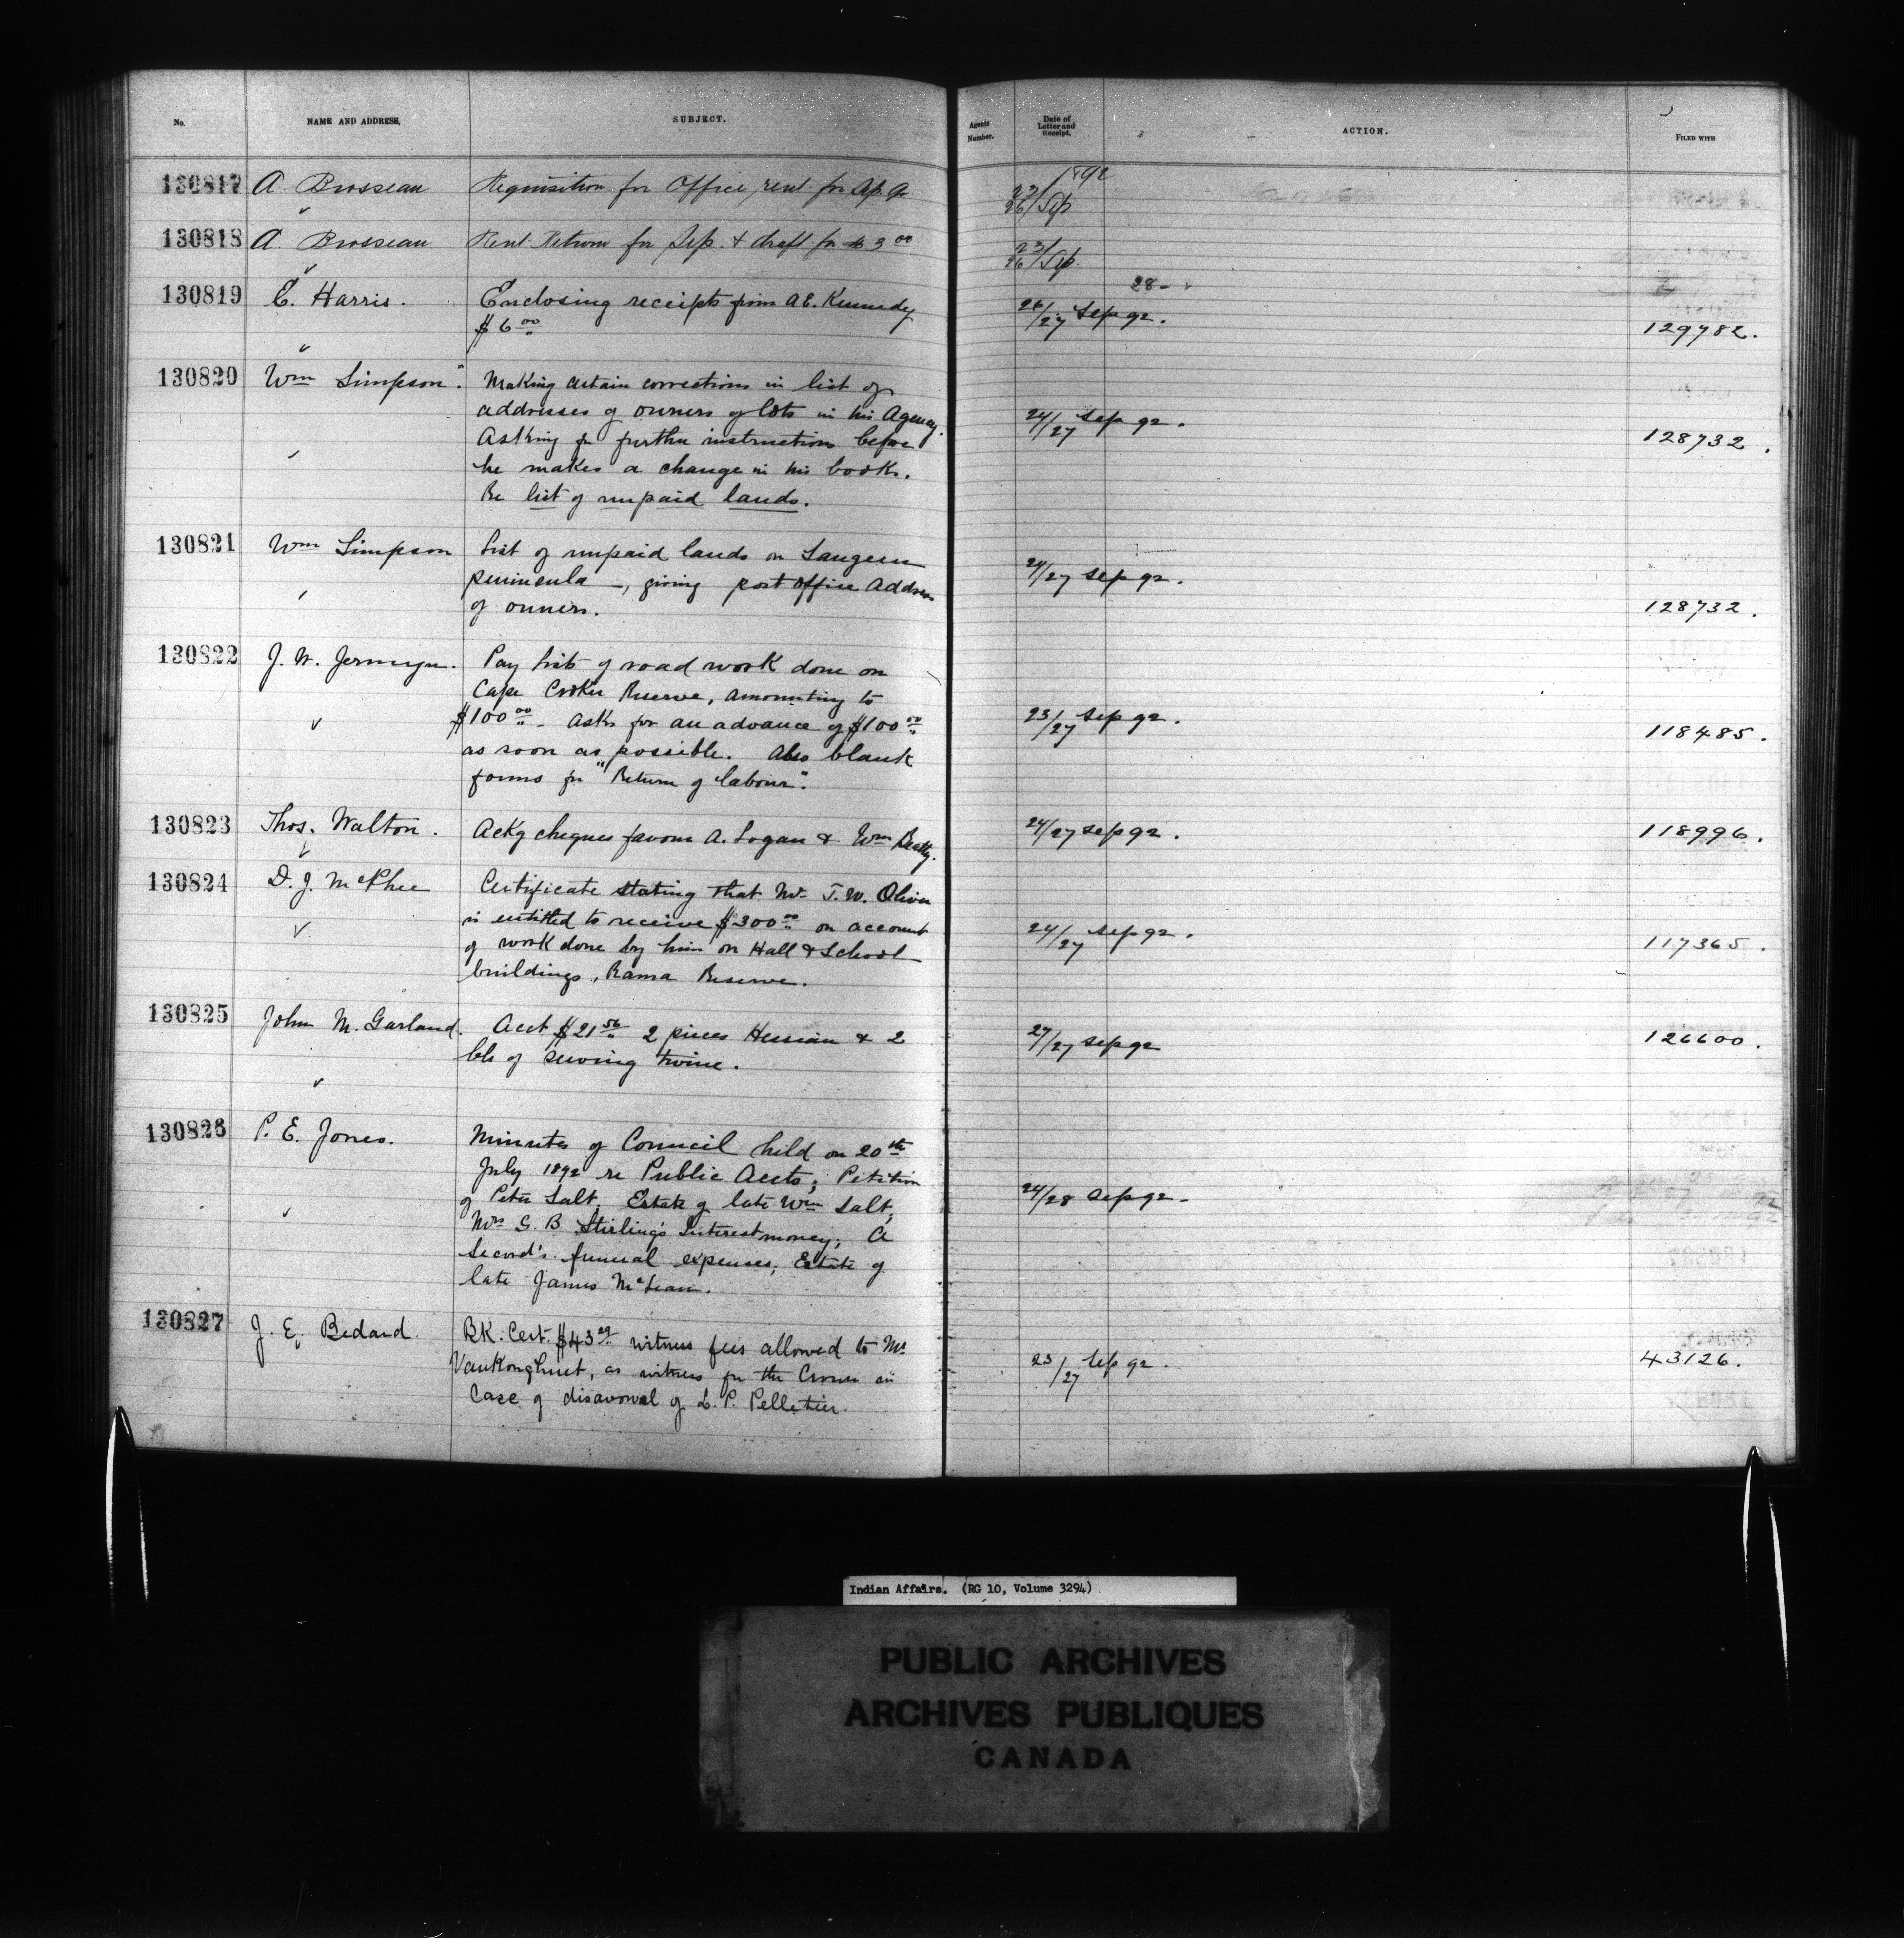 No.
NAME AND ADDRESS.
SUBJECT.
Agents Number.
Date of Letter and Receipt.
ACTION.
FILED WITH
130817 A. Brosseau Requisition for Office rent for Ap. a 23/26 Sep 1892
130818 A. Brosseau Rent Return for Sep. & draft for $3 00 23/26 Sep
130819 E. Harris. Enclosing receipts from A E. Kennedy 28-
$6 00 26/27 Sep 92. 129782.
130820 Wm Simpson. Making certain corrections in list of
addresses of owners of lots in his Agency. 24/27 Sep 92.
Asking for further instructions before 128732.
he makes a change in his books.
Re list of unpaid lands.
130821 Wm Simpson List of unpaid lands on Saugeen
peninsula —, giving post office address 24/27 Sep 92.
of owners. 128732.
130822 J. W. Jermyn. Pay list of road work done on
Cape Croker Reserve, amounting to
$100 00 - Asks for an advance of $100 00 23/27 Sep 92. 118485.
as soon as possible. Also blank
forms for "Return of labour".
130823 Thos. Walton. Ackg cheques favour A. Logan & Wm Beatty. 24/27 Sep 92. 118996.
130824 D. J. McPhee Certificate stating that Mr. J. W. Oliver
is entitled to receive $300 00 on account 24/27 Sep 92.
of work done by him on Hall & School 117365.
buildings, Rama Reserve.
130825 John M. Garland. Acct $21 56 2 pieces Hessian & 2 27/27 Sep 92 126600.
lbs of sewing twine.
130826 P. E. Jones. Minutes of Council held on 20th
July 1892 re Public Accts; Petition
of Peter Salt, Estate of late Wm Salt; 24/28 Sep 92-
Mrs G. B Stirling's Interest money; A
Secord's funeral expenses; Estate of
late James McLean.
130827 J. E. Bedard. BK. Cert. $43 29 witness fees allowed to Mr
Vankoughnet, as witness for the Crown in 23/27 Sep 92. 43126.
Case of disavowal of L. P. Pelletier.
Indian Affairs. (RG 10, Volume 3294)
PUBLIC ARCHIVES
ARCHIVES PUBLIQUES
CANADA